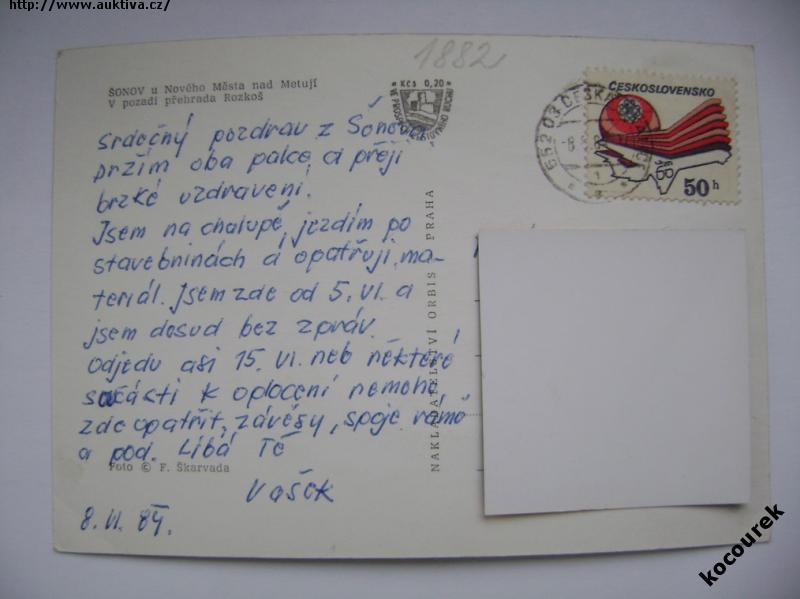 http://www.auktiva.cz/
1882
ŠONOV u Nového Města nad Metují
V pozadí přehrada Rozkoš
Kčs 0,20
ČESKOSLOVENSKO
50 h
552 03 ČESKÁ
srdečný pozdrav z Šonova
držím oba palce a přeji
brzké uzdravení.
Jsem na chalupě, jezdím po
stavebninách a opatřuji ma-
teriál. Jsem zde od 5. VI. a
jsem dosud bez zpráv.
Odjedu asi 15. VI. neb některé
součásti k oplocení nemohu
zde opatřit, závěsy, spoje rámů
a pod. Líbá Tě
Vašek
8. VI. 84.
Foto © F. Škarvada
NAKLADATELSTVÍ ORBIS PRAHA
kocourek